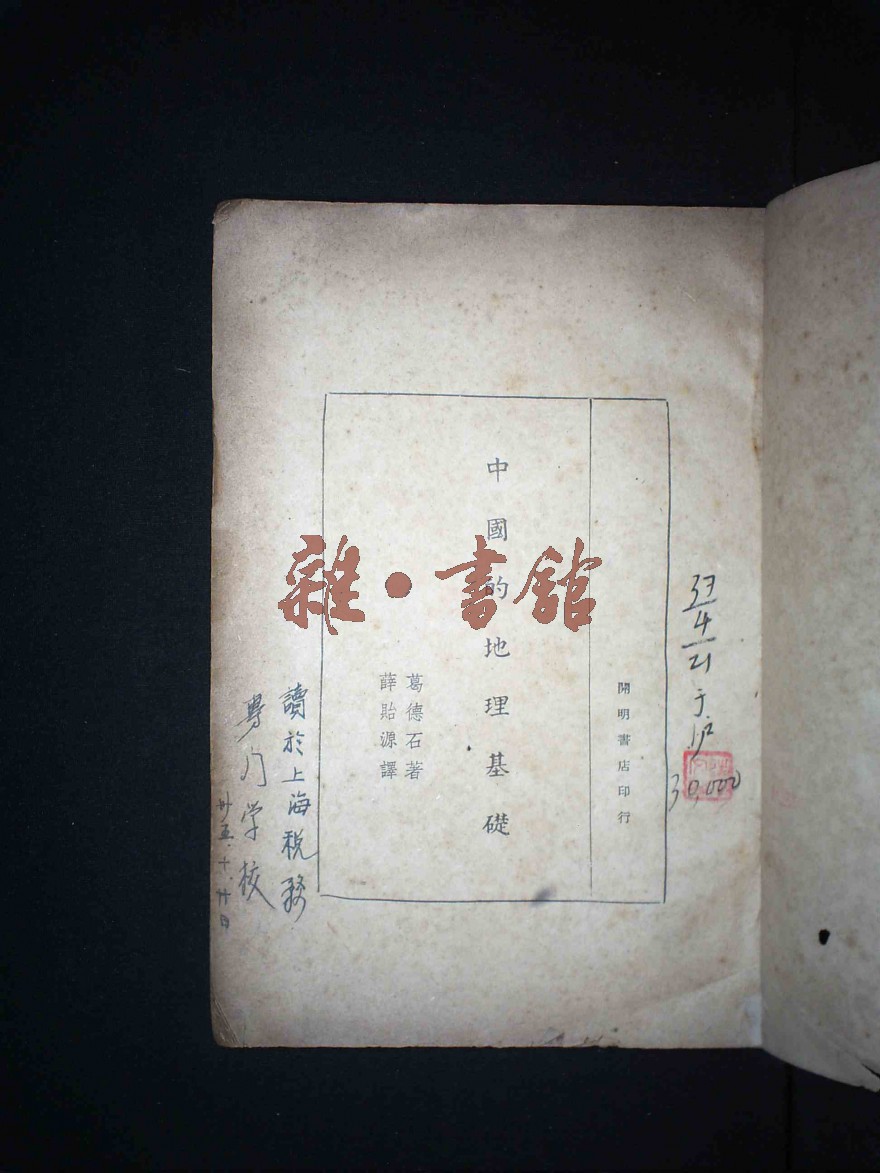 開明書店印行
中國的地理基礎
葛德石著
薛貽源譯
雜·書館
讀於上海稅務
專门学校
卅五.十.廿日
4
21
于沪
30,000